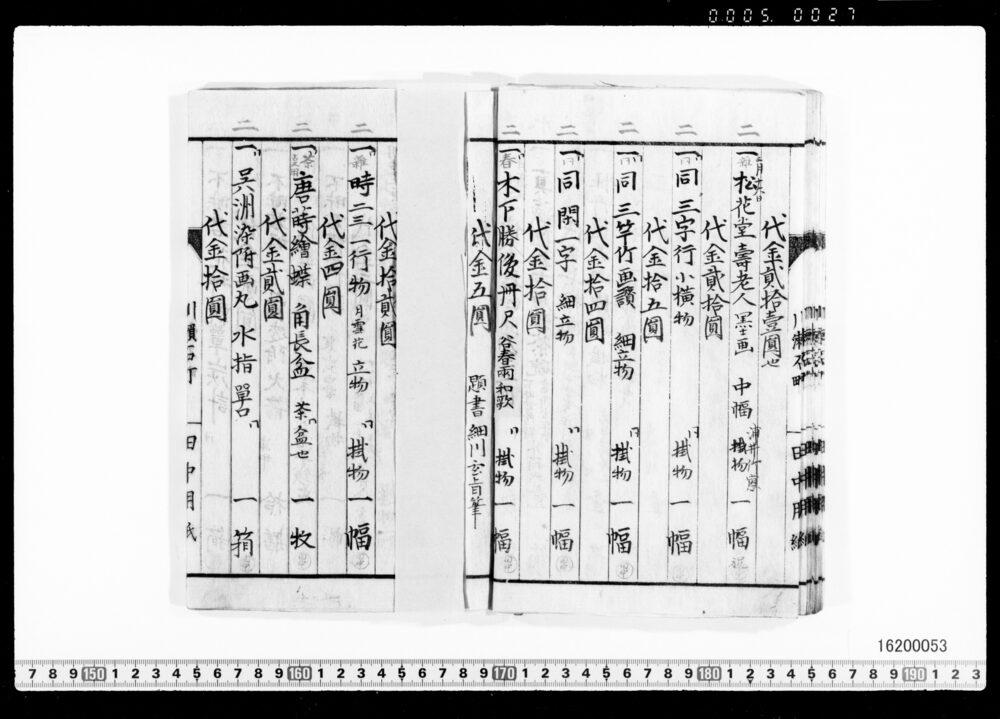 0005. 0027
二 一 松花堂壽老人墨画 中幅 掛物 一幅
代金貳拾壹圓也
二 一 同 三字行小横物 掛物 一幅
代金貳拾圓
二 一 同 三竿竹画讃 細立物 掛物 一幅
代金拾五圓
二 一 同 閑一字 細立物 掛物 一幅
代金拾四圓
二 一 春 木下勝俊丹尺 谷春雨和歌 掛物 一幅
代金拾圓
題書細川 筆
代金五圓
二 一 時二三一行物 月雪花 立物 掛物 一幅
代金拾貳圓
二 一 茶 唐蒔繪蝶 角長盆 茶盆也 一枚
代金四圓
二 一 呉洲染附画丸 水指 單口 一箱
代金貳圓
代金拾圓
川瀬石町 田中用紙
16200053
7 8 9 150 1 2 3 4 5 6 7 8 9 160 1 2 3 4 5 6 7 8 9 170 1 2 3 4 5 6 7 8 9 180 1 2 3 4 5 6 7 8 9 190 1 2 3